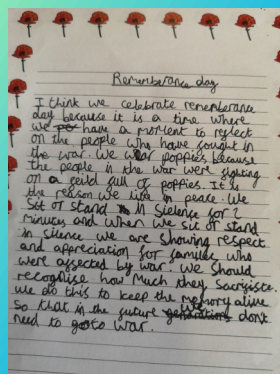 Rememberance day
I think we celebrate rememberance
day because it is a time where
we have a moment to reflect
on the people who have fought in
the war. We wear poppies because
the people in the war were fighting
on a feild full of poppies. It is
the reason we live in peace. We
sit or stand in sielence for 2
minutes and when we sit or stand
in silence we are showing respect
and appreciation for families who
were affected by war. We should
recognise how much they sacrifiste.
We do this to keep the memory alive
so that in the future we don't
need to go to war.